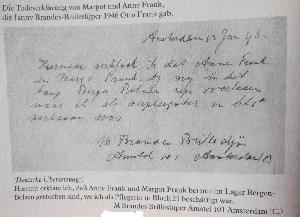 Die Todeserklärung von Margot und Anne Frank,
die Janny Brandes-Brilleslijper 1946 Otto Frank gab.
Amsterdam Jan 46.
Hiermee verklaar ik dat Anne Frank
en Margot Frank bij mij in het
kamp Bergen Belsen zijn overleden
waar ik als verpleegster in blok
werkzaam was
M Brandes Brilleslijper
Amstel 101 Amsterdam
(Deutsche Übersetzung:)
Hiermit erkläre ich, daß Anne Frank und Margot Frank bei mir im Lager Bergen-
Belsen gestorben sind, wo ich als Pflegerin in Block 21 beschäftigt war.
M Brandes Brilleslijper Amstel 101 Amsterdam (C)